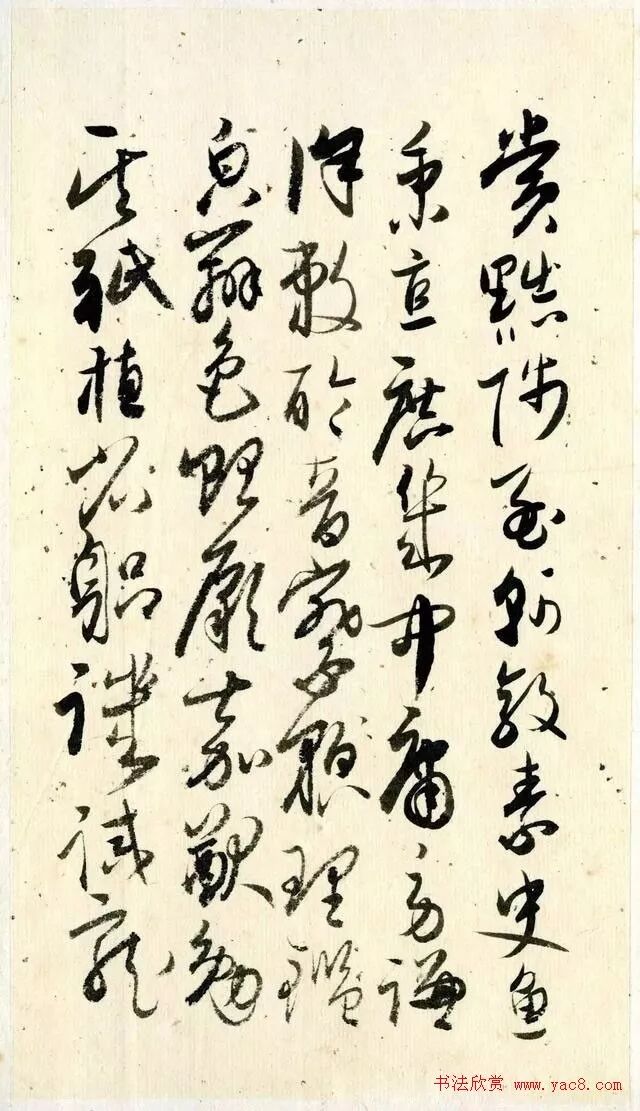 賞黜陟孟軻敦素史魚
秉直庶幾中庸勞謙
謹敕聆音察理鑑
皃辨色貽厥嘉猷勉
其祗植省躬譏誡寵
书法欣赏 www.yac8.com